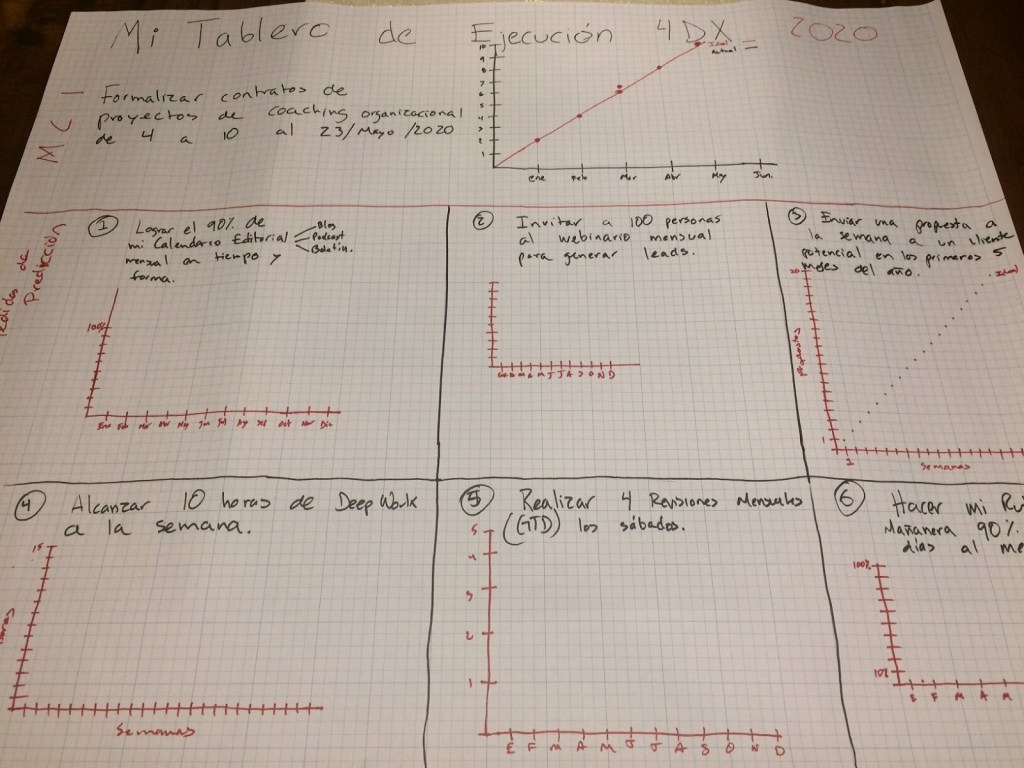 Mi Tablero de Ejecución 4DX = 2020
MCI
Formalizar contratos de
proyectos de coaching organizacional
de 4 a 10 al 23/Mayo/2020
10
9
8
7
6
5
4
3
2
1
Ideal
Actual
Ene Feb Mar Abr May Jun.
de
Predicción
1 Lograr el 90% de
mi Calendario Editorial
mensual en tiempo y
forma.
Blog
Podcast
Boletín.
100%
Ene Feb Mar Abr May Jun Jul Ag Sep Oct Nov Dic
2 Invitar a 100 personas
al webinario mensual
para generar leads.
E F M A M J J A S O N D
3 Enviar una propuesta a
la semana a un cliente
potencial en los primeros 5
meses del año.
20
Ideal
Propuestas
1
1
Semanas
4 Alcanzar 10 horas de Deep Work
a la semana.
15
Horas
Semanas
5 Realizar 4 Revisiones Mensuales
(GTD) los sábados.
5
4
3
2
1
E F M A M J J A S O N D
6 Hacer mi
Mañanera 90%
días al
100%
10%
E F M A M